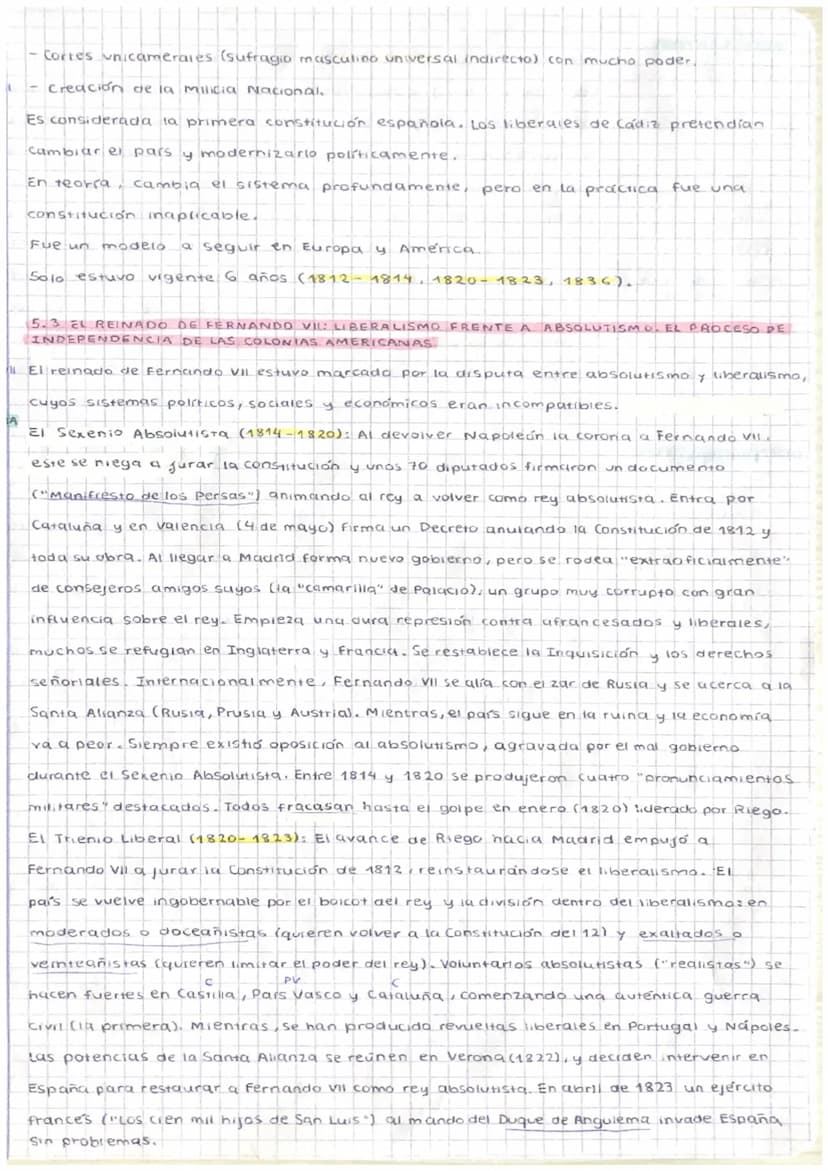 - Cortes unicamerales (sufragio masculino universal indirecto) con mucho poder.
- Creación de la Milicia Nacional.
Es considerada la primera constitución española. Los liberales de Cádiz pretendían
cambiar el país y modernizarlo políticamente.
En teoría, cambia el sistema profundamente, pero en la práctica fue una
constitución inaplicable.
Fue un modelo a seguir en Europa y América.
Solo estuvo vigente 6 años (1812-1814, 1820-1823, 1836).
5.3 EL REINADO DE FERNANDO VII: LIBERALISMO FRENTE A ABSOLUTISMO. EL PROCESO DE
INDEPENDENCIA DE LAS COLONIAS AMERICANAS
El reinado de Fernando VII estuvo marcado por la disputa entre absolutismo y liberalismo,
cuyos sistemas políticos, sociales y económicos eran incompatibles.
El Sexenio Absolutista (1814-1820): Al devolver Napoleón la corona a Fernando VII,
este se niega a jurar la constitución y unos 70 diputados firmaron un documento
("Manifiesto de los Persas") animando al rey a volver como rey absolutista. Entra por
Cataluña y en Valencia (4 de mayo) firma un Decreto anulando la Constitución de 1812 y
toda su obra. Al llegar a Madrid forma nuevo gobierno, pero se rodea "extraoficialmente"
de consejeros amigos suyos (la "camarilla" de Palacio), un grupo muy corrupto con gran
influencia sobre el rey. Empieza una dura represión contra afrancesados y liberales,
muchos se refugian en Inglaterra y Francia. Se restablece la Inquisición y los derechos
señoriales. Internacionalmente, Fernando VII se alía con el zar de Rusia y se acerca a la
Santa Alianza (Rusia, Prusia y Austria). Mientras, el país sigue en la ruina y la economía
va a peor. Siempre existió oposición al absolutismo, agravada por el mal gobierno
durante el Sexenio Absolutista. Entre 1814 y 1820 se produjeron cuatro "pronunciamientos
militares" destacados. Todos fracasan hasta el golpe en enero (1820) liderado por Riego.
El Trienio Liberal (1820-1823): El avance de Riego hacia Madrid empujó a
Fernando VII a jurar la Constitución de 1812, reinstaurándose el liberalismo. El
país se vuelve ingobernable por el boicot del rey y la división dentro del liberalismo: en
moderados o doceañistas (quieren volver a la Constitución del 12) y exaltados o
veinteañistas (quieren limitar el poder del rey). Voluntarios absolutistas ("realistas") se
C PV C
hacen fuertes en Castilla, País Vasco y Cataluña, comenzando una auténtica guerra
civil (la primera). Mientras, se han producido revueltas liberales en Portugal y Nápoles.
Las potencias de la Santa Alianza se reúnen en Verona (1822), y deciden intervenir en
España para restaurar a Fernando VII como rey absolutista. En abril de 1823 un ejército
francés ("Los cien mil hijos de San Luis") al mando del Duque de Angulema invade España
sin problemas.